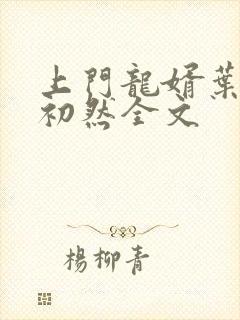 上門龍婿葉
初然全文
楊柳青